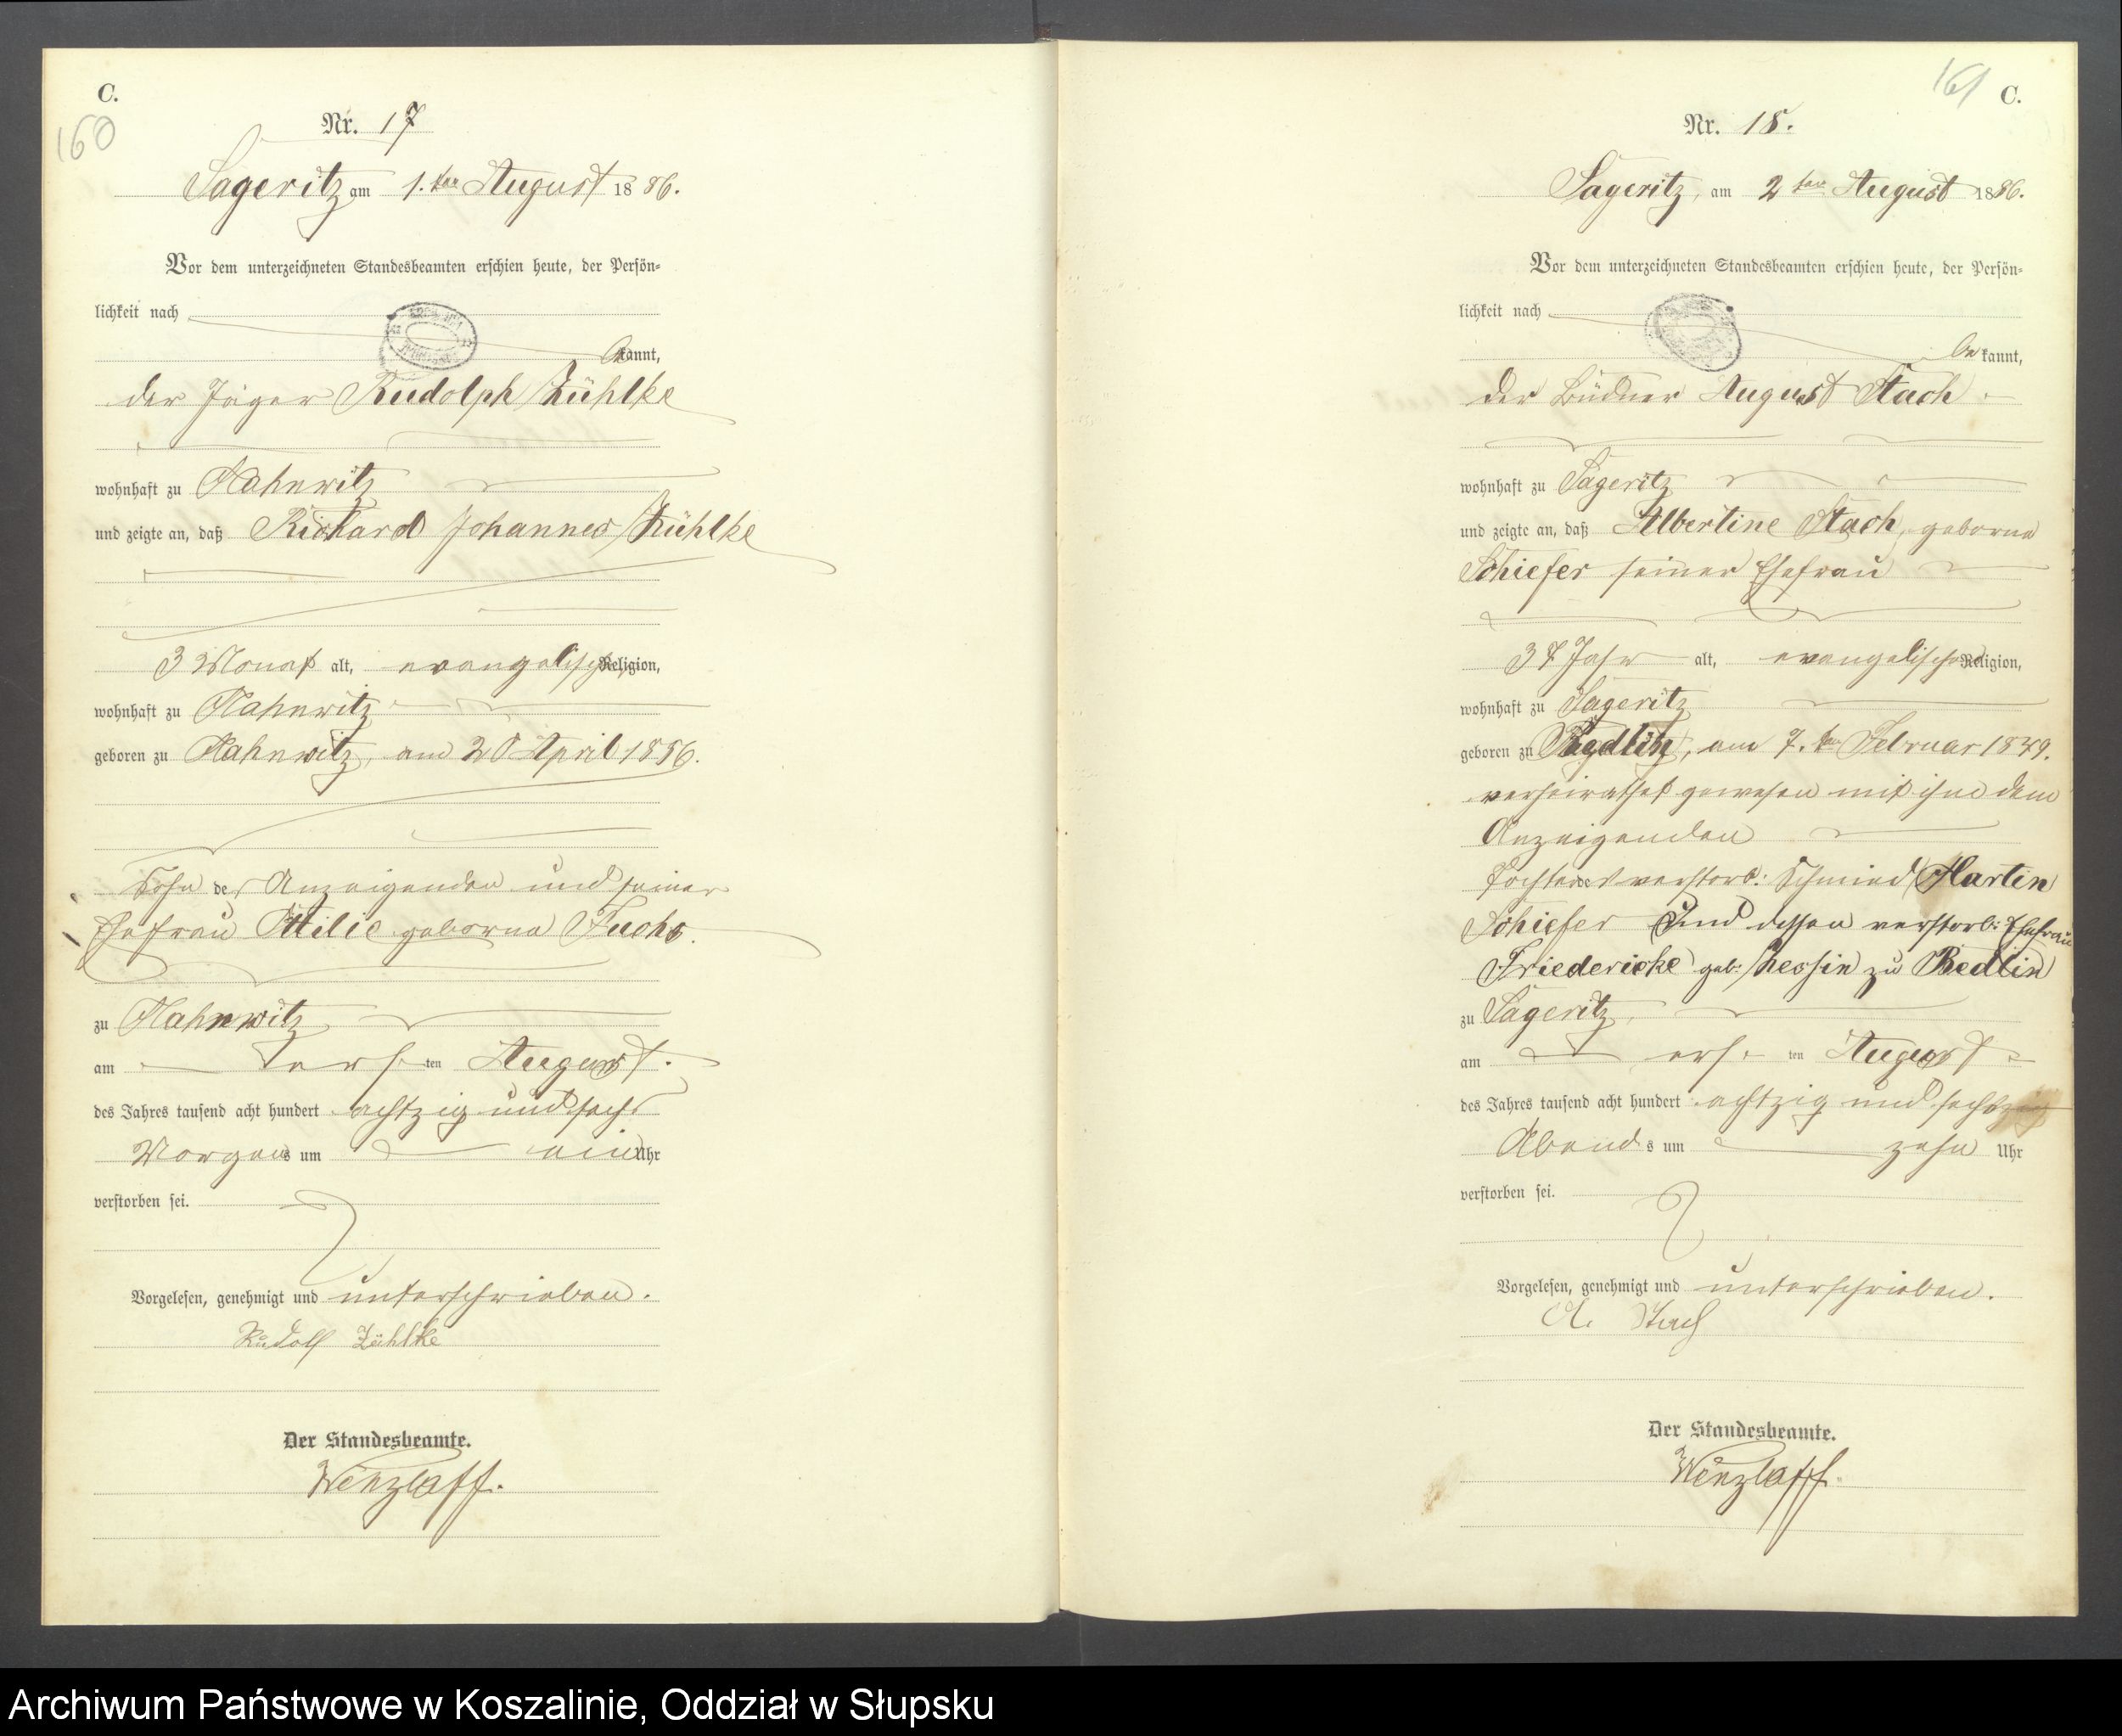 C.
160
Nr. 17
Sageritz am 1.ten August 1886.
Vor dem unterzeichneten Standesbeamten erschien heute, der Persön-
lichkeit nach
bekannt,
der Jäger Rudolph Zühlke
wohnhaft zu Hahnwitz
und zeigte an, daß Richard Johannes Zühlke
3 Monat alt, evangelischer Religion,
wohnhaft zu Hahnwitz
geboren zu Hahnwitz, am 20 April 1886.
Sohn des Anzeigenden und seiner
Ehefrau Ottilie geborne Fuchs.
zu Hahnwitz
am ersten August.
des Jahres tausend acht hundert achtzig und sechs
Morgens um ein Uhr
verstorben sei.
Vorgelesen, genehmigt und unterschrieben.
Rudolf Zühlke
Der Standesbeamte.
Wenzlaff.
161
C.
Nr. 18.
Sageritz, am 2ten August 1886.
Vor dem unterzeichneten Standesbeamten erschien heute, der Persön-
lichkeit nach
bekannt,
der Büdner August Stach
wohnhaft zu Sageritz
und zeigte an, daß Albertine Stach, geborne
Schiefer seiner Ehefrau
37 Jahr alt, evangelischer Religion,
wohnhaft zu Sageritz
geboren zu, am 7.ten Februar 1849.
verheirathet gewesen mit ihm dem
Anzeigenden
Tochter des verstorb: Schmied Martin
Schiefer und dessen verstorb: Ehefrau
Friedericke geb: zu Redlin
zu Sageritz,
am ersten August
des Jahres tausend acht hundert achtzig und sechs
Abends um zehn Uhr
verstorben sei.
Vorgelesen, genehmigt und unterschrieben.
A. Stach
Der Standesbeamte.
Wenzlaff.
Archiwum Państwowe w Koszalinie, Oddział w Słupsku